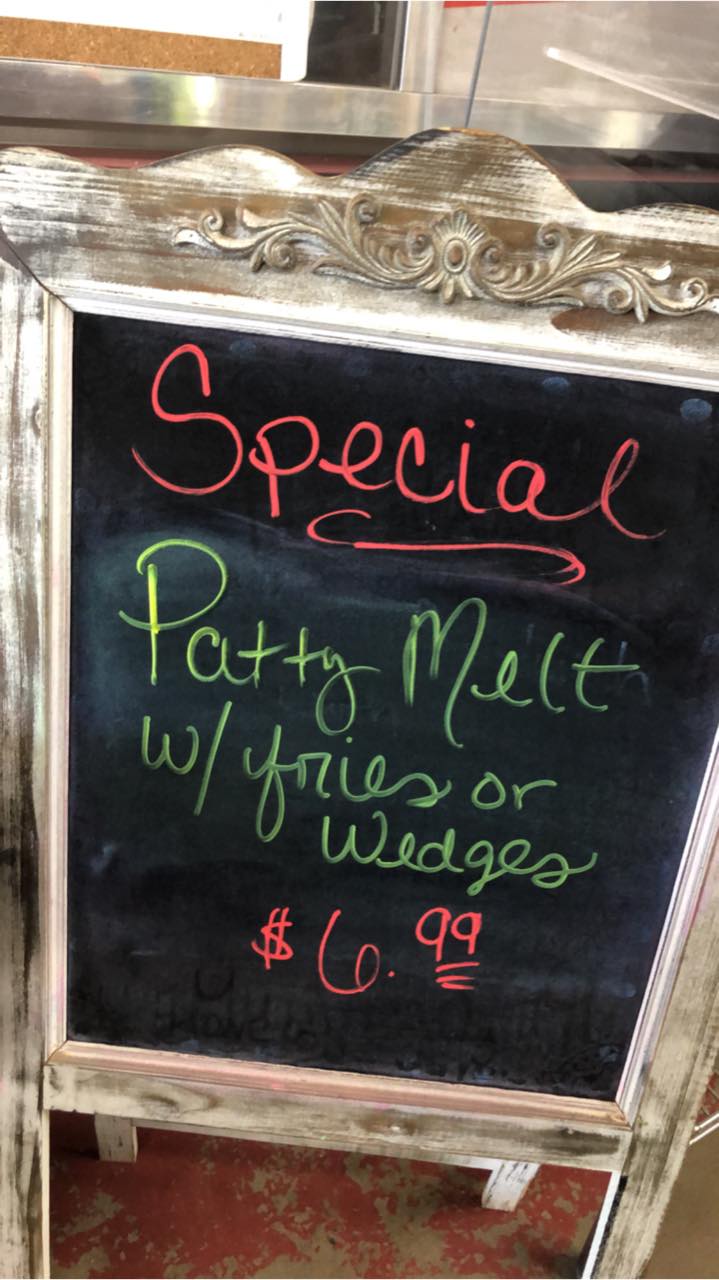 Special
Patty Melt
w/ fries or
Wedges
$6.99